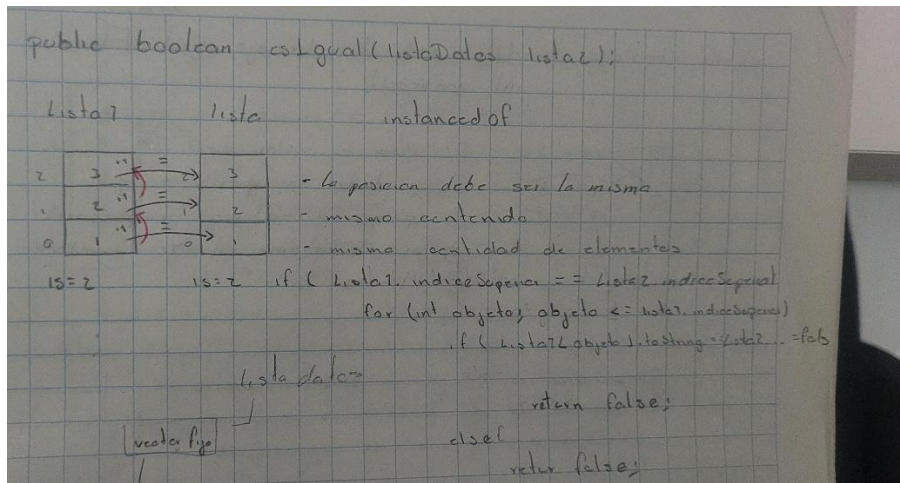 public boolean esIgual(listaDatos lista2);
Lista1 lista instanced of
2 3 +1 = 2 3 - la posicion debe ser la misma
1 2 +1 = 1 2 - mismo contenido
0 1 +1 = 0 1 - misma cantidad de elementos
is=2 is=2 if ( Lista1. indiceSuperior == Lista2 indiceSuperior)
for (int objeto; objeto <= lista1. indiceSuperior)
if ( Lista1[objeto].toString = Lista2 ... = fals
Lista datos
return false;
vector fijo else{
retur false;